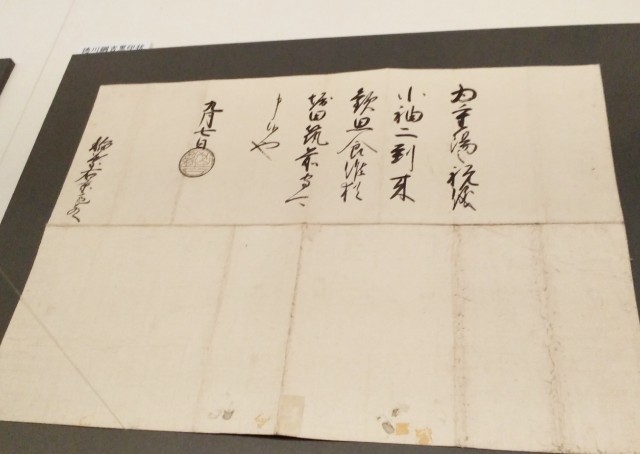 為重陽之祝儀
小袖二到来
歓思食候猶
堀田筑前守可
申候也
九月七日